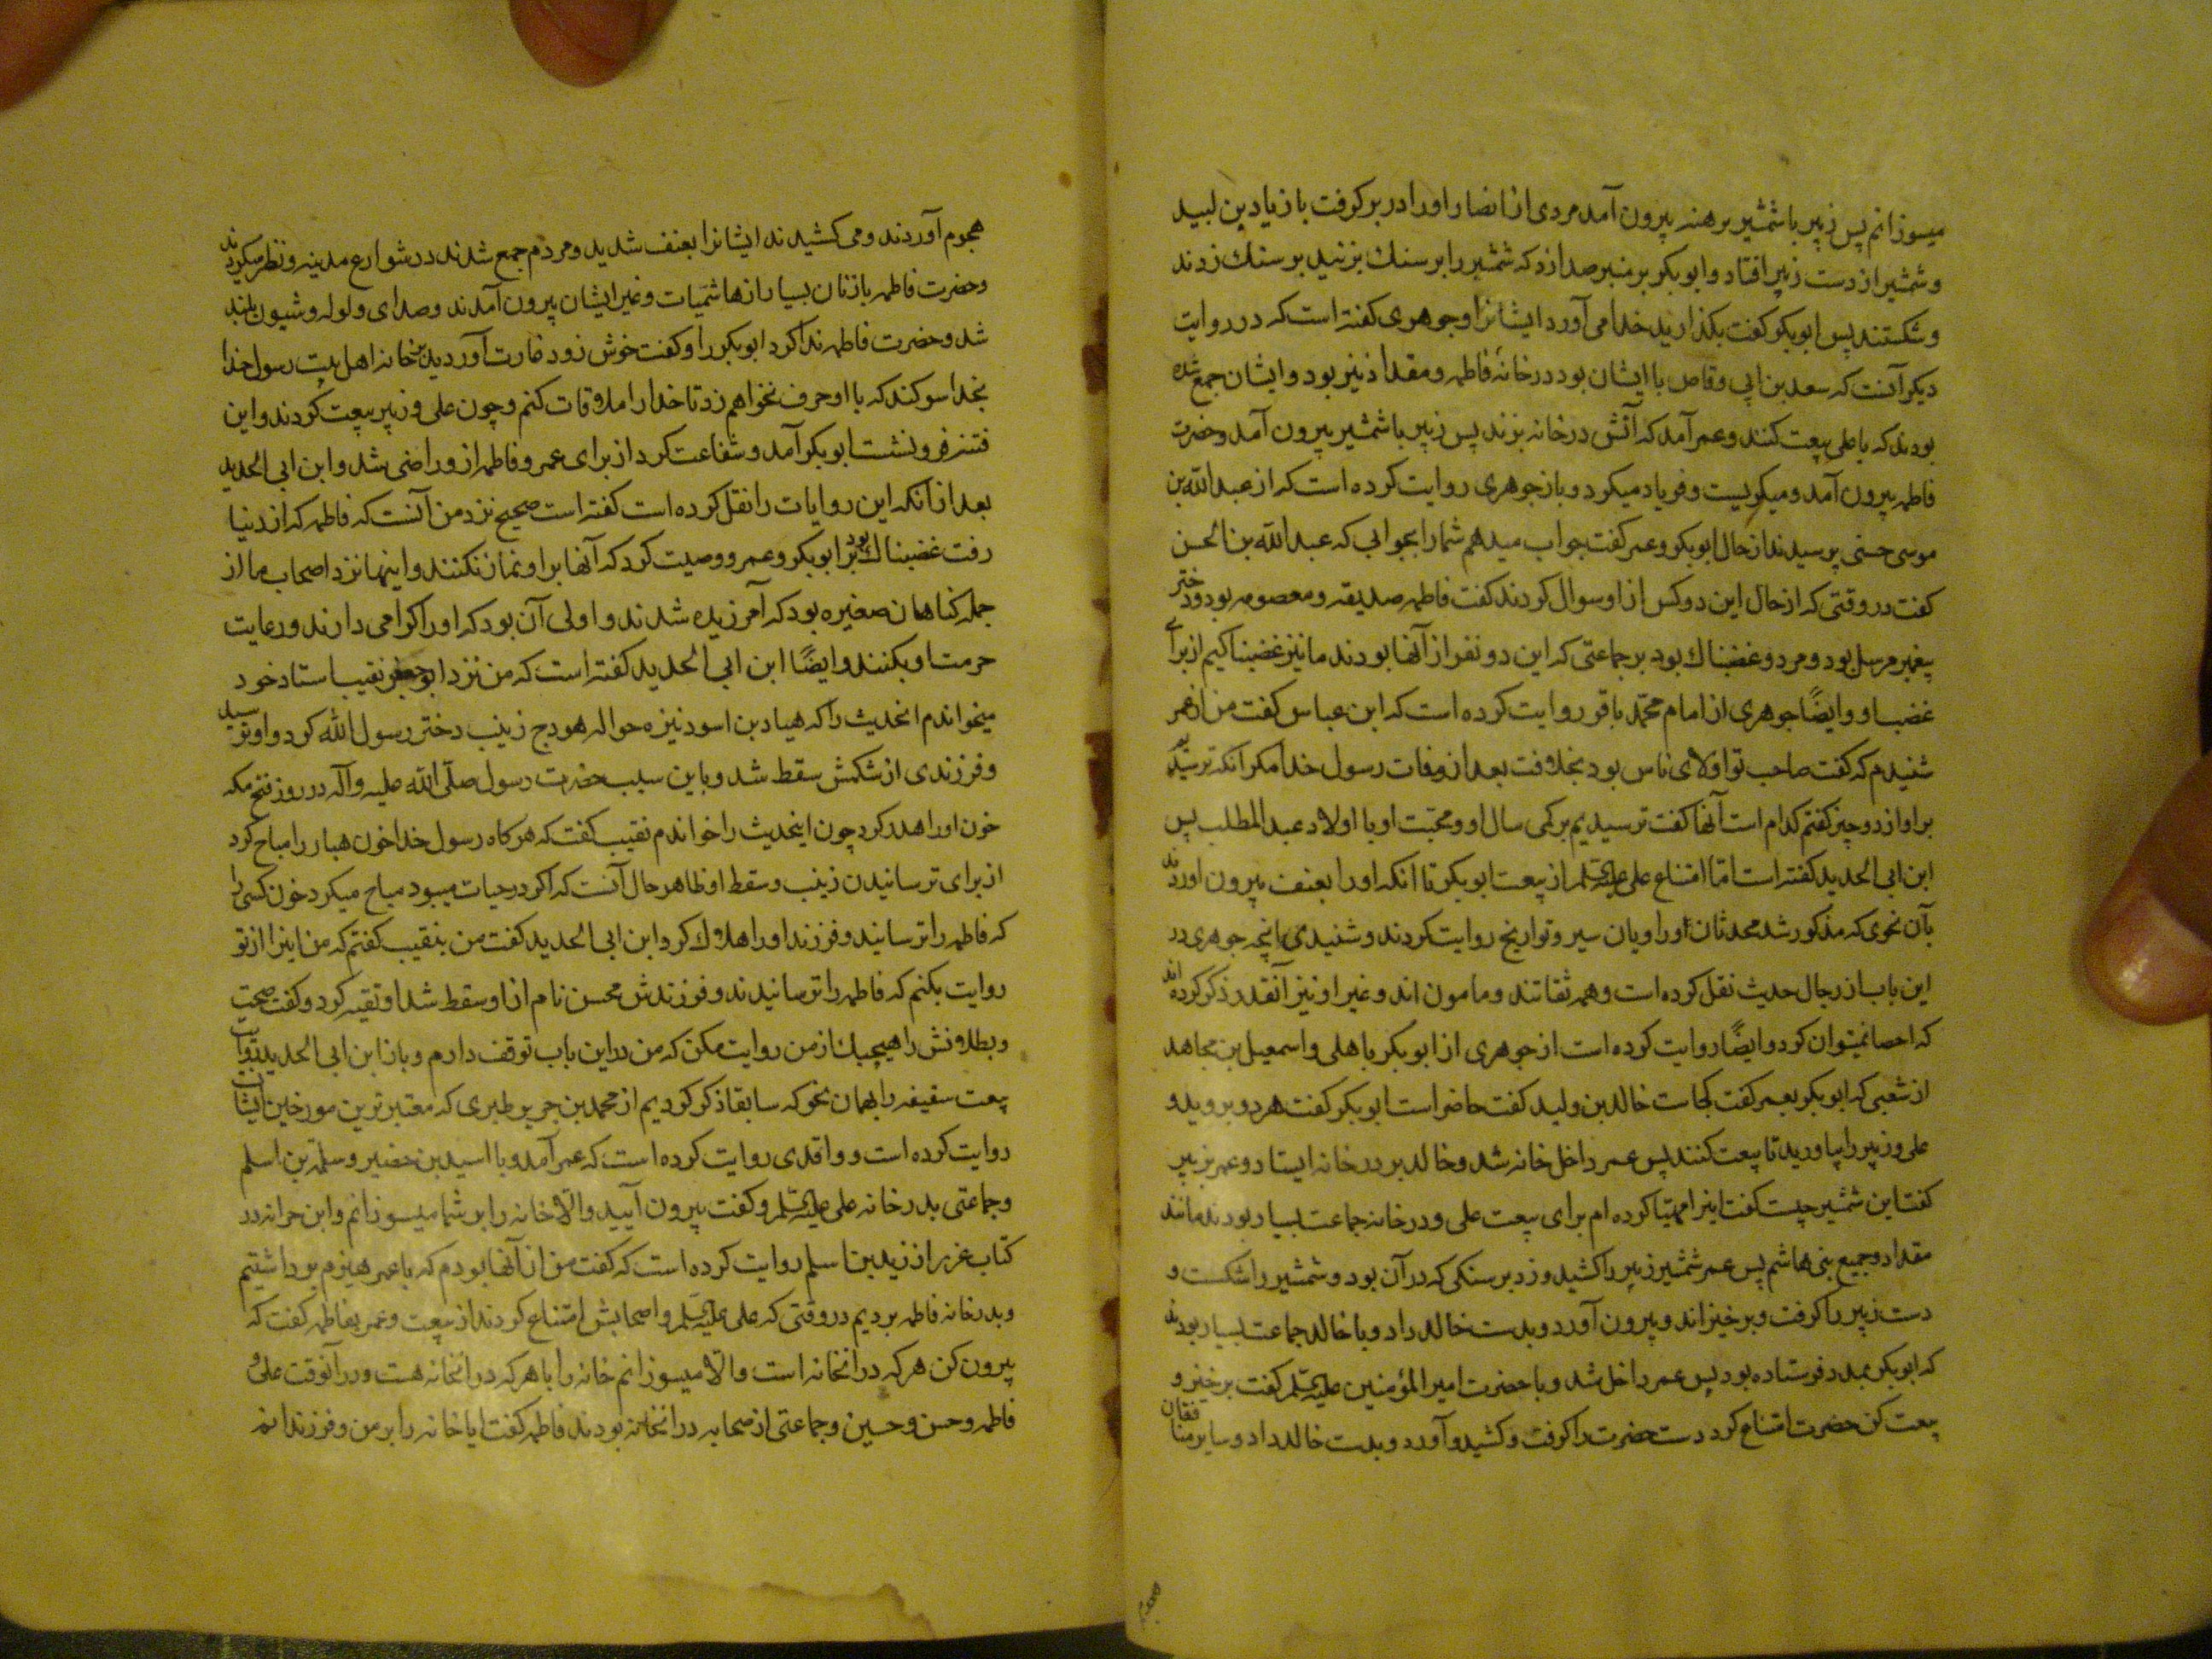 میسوزانم پس زبیر با شمشیر برهنه بیرون آمد مردی از انصار او را در بر گرفت با زیاد بن لبید
و شمشیر از دست زبیر افتاد و ابوبکر بر منبر صدا زد که شمشیر را بر سنك بزنید بر سنك زدند
و شکستند پس ابوبکر کفت بکذارید خدا می آورد ایشانرا و جوهری کفته است که در روایت
دیکر آنست که سعد بن ابی وقاص با ایشان بود در خانهٔ فاطمه و مقداد نیز بود و ایشان جمع شده
بودند که با علی بیعت کنند و عمر آمد که آتش در خانه بزند پس زبیر با شمشیر بیرون آمد و حضرت
فاطمه بیرون آمد و میکریست و فریاد میکرد و باز جوهری روایت کرده است که از عبد الله بن
موسی حسنی پرسیدند از حال ابوبکر و عمر کفت جواب میدهم شما را بجوابی که عبد الله بن الحسن
کفت در وقتی که از حال این دو کس از او سوال کردند کفت فاطمه صدیقه و معصومه بود و دختر
پیغمبر مرسل بود و مرد و غضبناك بود بر جماعتی که این دو نفر از آنها بودند ما نیز غضبناکیم از برای
غضب او و ایضًا جوهری از امام محمّد باقر روایت کرده است که ابن عباس کفت من از عمر
شنیدم که کفت صاحب تو اولای ناس بود بخلافت بعد از وفات رسول خدا مکر آنکه ترسیدیم
بر او از دو چیز کفتم کدام است آنها کفت ترسیدیم بر کمی سال او و محبّت او با اولاد عبد المطلب پس
ابن ابی الحدید کفته است امّا امتناع علی علیه السّلم از بیعت ابوبکر تا آنکه او را بعنف بیرون آوردند
بآن نحوی که مذکور شد محدثان و راویان سیر و تواریخ روایت کردند و شنیدی آنچه جوهری در
این باب از رجال حدیث نقل کرده است و همه ثقاتند و مامون اند و غیر او نیز آنقدر ذکر کرده اند
که احصا نمیتوان کرد و ایضًا روایت کرده است از جوهری از ابوبکر باهلی و اسمعیل بن مجاهد
از شعبی که ابوبکر بعمر کفت کجاست خالد بن ولید کفت حاضر است ابوبکر کفت هر دو بروید و
علی و زبیر را بیاورید تا بیعت کنند پس عمر داخل خانه شد و خالد بر در خانه ایستاد و عمر بزبیر
کفت این شمشیر چیست کفت اینرا مهیّا کرده ام برای بیعت علی و در خانه جماعت بسیار بودند مانند
مقداد و جمیع بنی هاشم پس عمر شمشیر زبیر را کشید و زد بر سنکی که در آن بود و شمشیر را شکست و
دست زبیر را کرفت و برخیزاند و بیرون آورد و بدست خالد داد و با خالد جماعت بسیار بودند
که ابوبکر بمدد فرستاده بود پس عمر داخل شد و با حضرت امیر المؤمنین علیه السّلم کفت برخیز و
بیعت کن حضرت امتناع کرد دست حضرت را کرفت و کشید و آورد و بدست خالد داد و سایر منافقان
هجوم آوردند و می کشیدند ایشانرا بعنف شدید و مردم جمع شدند در شوارع مدینه و نظر میکردند
و حضرت فاطمه با زنان بسیار از هاشمیات و غیر ایشان بیرون آمدند و صدای ولوله و شیون بلند
شد و حضرت فاطمه ندا کرد ابوبکر را و کفت خوش زود غارت آوردید بخانه اهل بیت رسول خدا
بخدا سوکند که با او حرف نخواهم زد تا خدا را ملاقات کنم و چون علی و زبیر بیعت کردند و این
فتنه فرو نشست ابوبکر آمد و شفاعت کرد از برای عمر و فاطمه از و راضی شد و ابن ابی الحدید
بعد از آنکه این روایات را نقل کرده است کفته است صحیح نزد من آنست که فاطمه که از دنیا
رفت غضبناك بود بر ابوبکر و عمر و وصیت کرد که آنها بر او نماز نکنند و اینها نزد اصحاب ما از
جمله کناهان صغیره بود که آمرزیده شدند و اولی آن بود که او را کرامی دارند و رعایت
حرمت او بکنند و ایضًا ابن ابی الحدید کفته است که من نزد ابو جعفر نقیب استاد خود
میخواندم انحدیث را که هبار بن اسود نیزه حواله هودج زینب دختر رسول الله کرد و او ترسید
و فرزندی از شکمش سقط شد و باین سبب حضرت رسول صلّی الله علیه و آله در روز فتح مکه
خون او را هدر کرد چون اینحدیث را خواندم نقیب کفت که هرکاه رسول خدا خون هبار را مباح کرد
از برای ترسانیدن زینب و سقط او ظاهر حال آنست که اکر در حیات میبود مباح میکرد خون کسی را
که فاطمه را ترسانید و فرزند او را هلاك کرد ابن ابی الحدید کفت من بنقیب کفتم که من اینرا از تو
روایت بکنم که فاطمه را ترسانیدند و فرزندش محسن نام از او سقط شد او تقیه کرد و کفت صحت
و بطلانش را هیچیك از من روایت مکن که من در این باب توقف دارم و باز ابن ابی الحدید روایت
بیعت سقیفه را بهمان نحو که سابقا ذکر کردیم از محمد بن جریر طبری که معتبر ترین مورخین ایشانست
روایت کرده است و واقدی روایت کرده است که عمر آمد و با اسید بن حضیر و سلمة بن اسلم
و جماعتی بدر خانه علی علیه السّلم و کفت بیرون آیید و الّا خانه را بر شما میسوزانم و ابن خرانه در
کتاب غرر از زید بن اسلم روایت کرده است که کفت من از آنها بودم که با عمر هیزم برداشتیم
و بدر خانه فاطمه بردیم در وقتی که علی علیه السّلم و اصحابش امتناع کردند از بیعت و عمر بفاطمه کفت که
بیرون کن هر که در انخانه است و الّا میسوزانم خانه را با هر که در انخانه هست و در آنوقت علی و
فاطمه و حسن و حسین و جماعتی از صحابه در انخانه بودند فاطمه کفت ایا خانه را بر من و فرزندانم